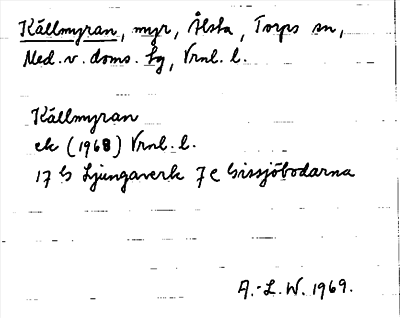 Källmyran, myr, Ålsta, Torps sn,
Med. v. doms. tg, Vrnl. l.
Källmyran
ek (1968) Vrnl. l.
17 G Ljungaverk 7 e Gissjöbodarna
A.-L. W. 1969.